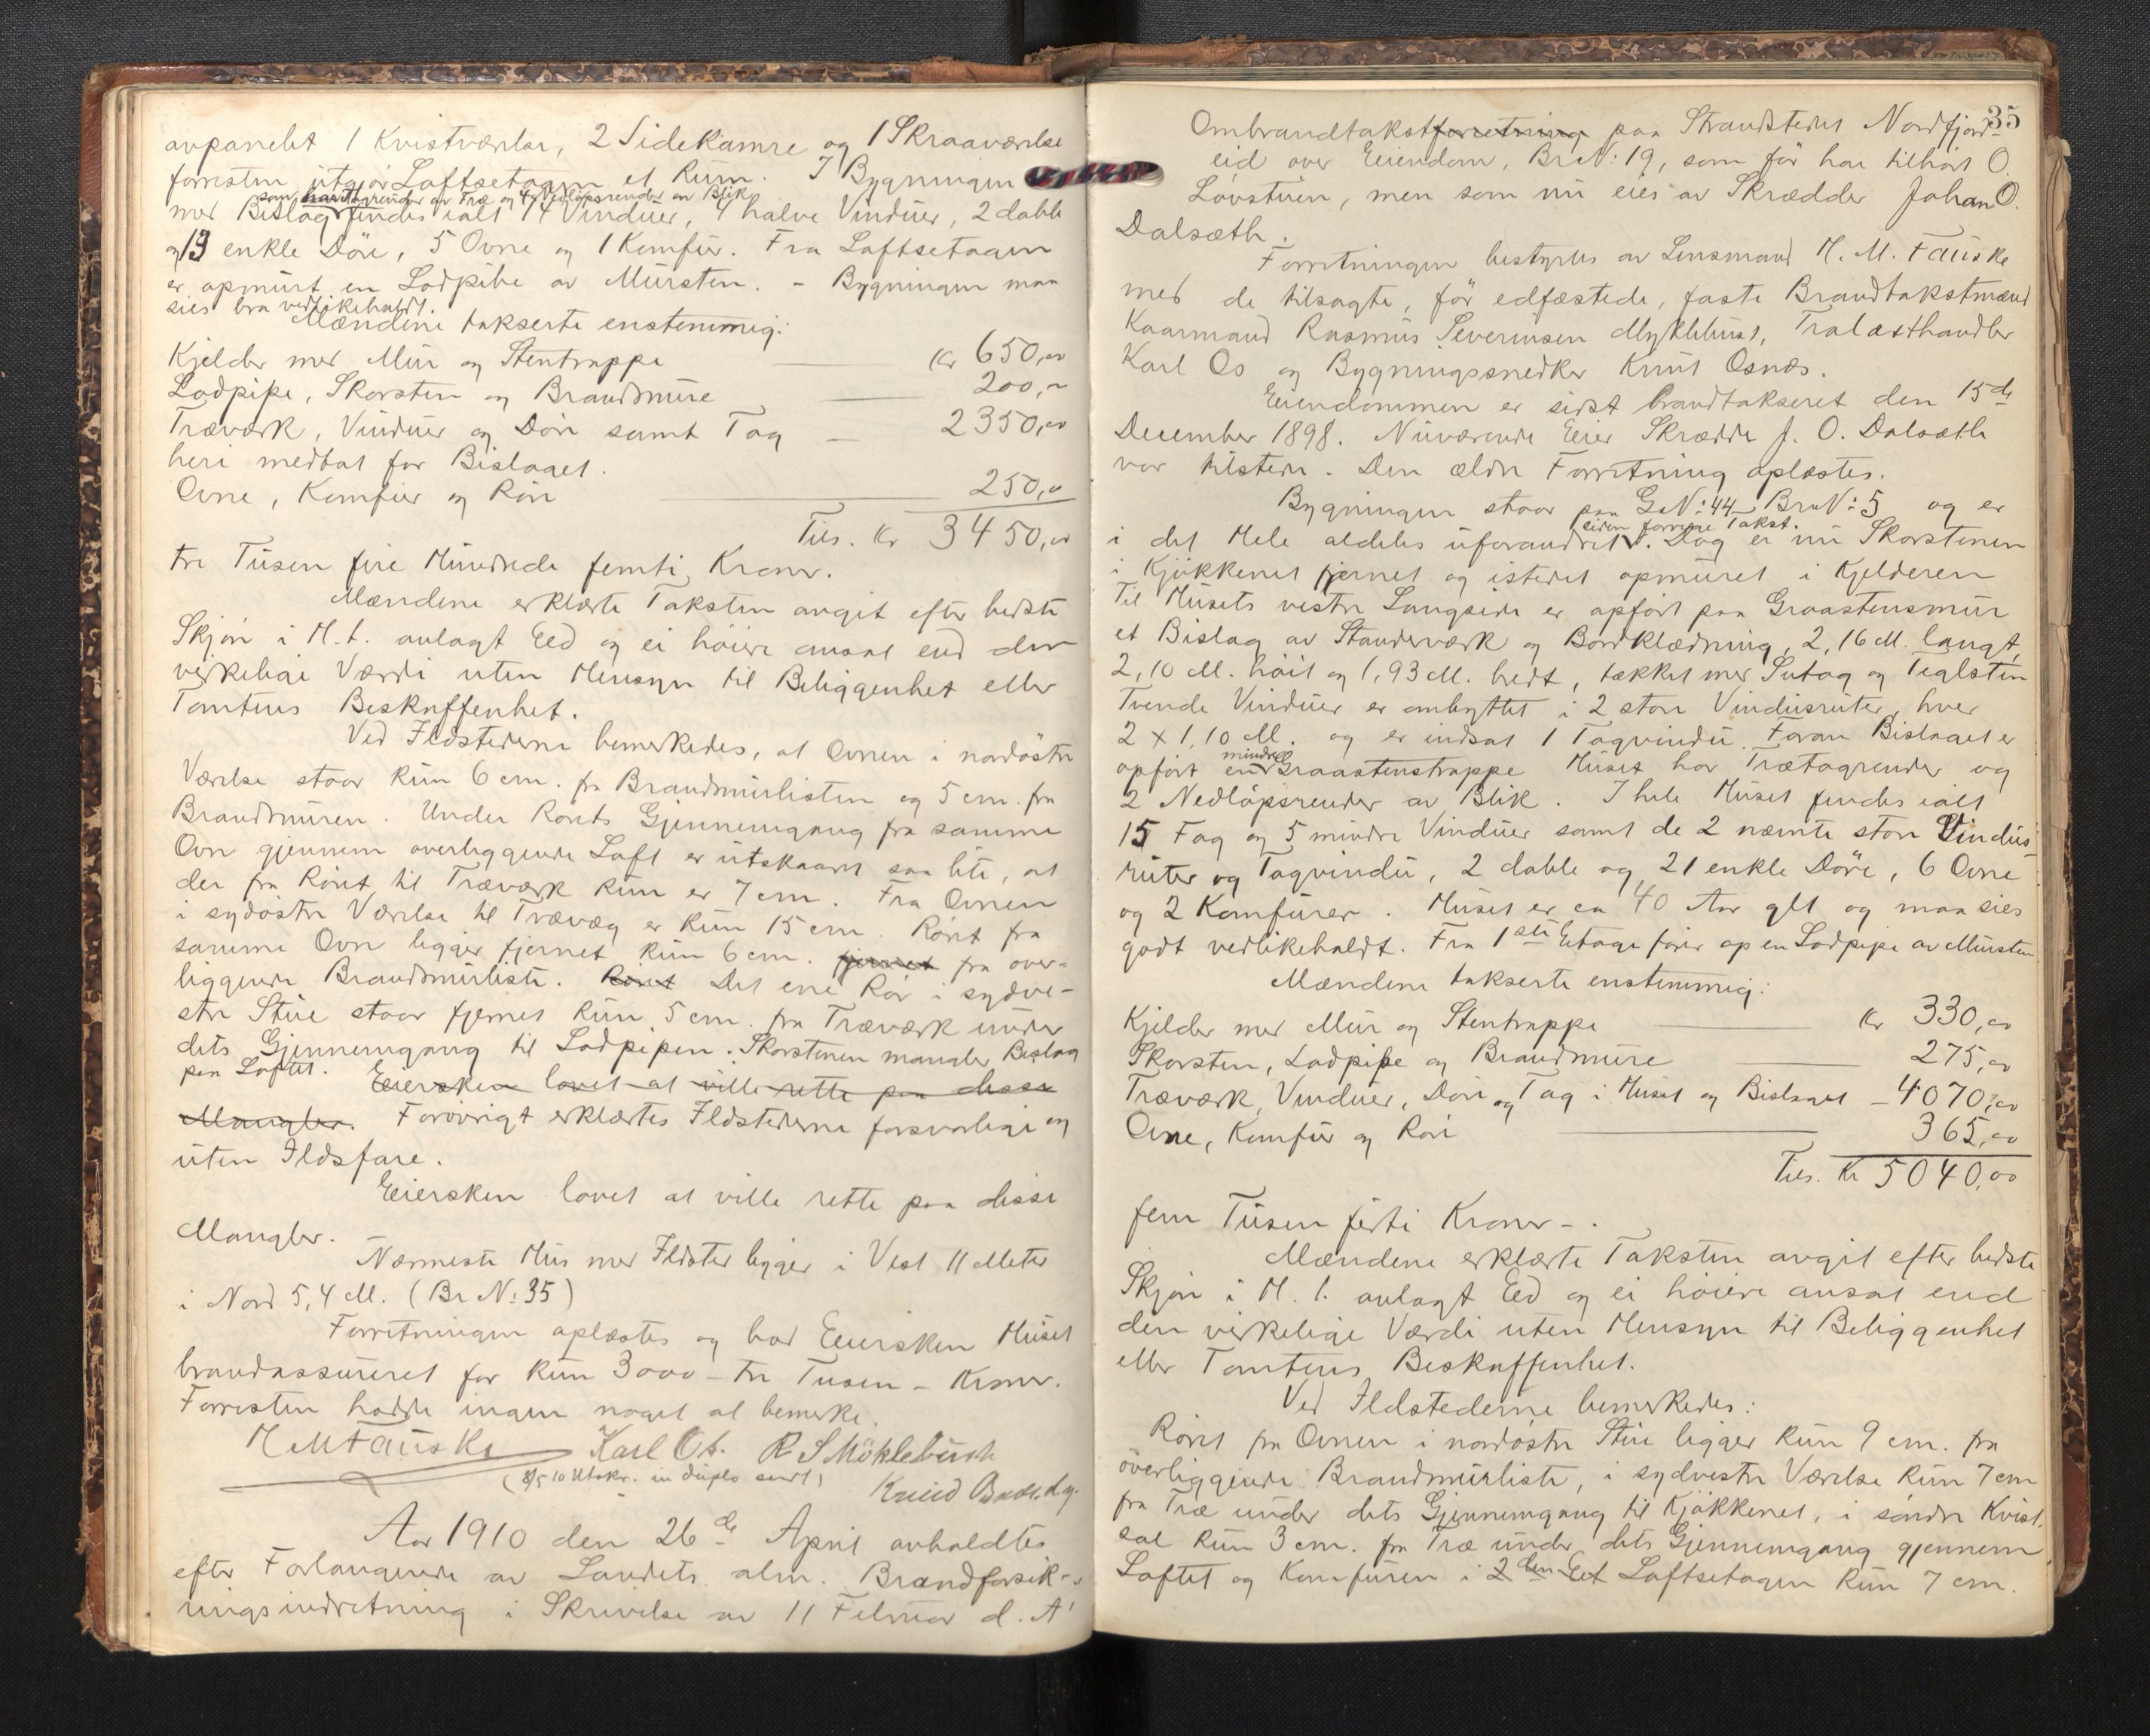 avpanelet 1 Kvistværelse, 2 Sidekamre og 1 Skraaværelse
forresten utgjør Loftsetagen et Rum. I Bygningen
som har Tagrender av Træ og 4 Nedløpsrender av Blik
med Bislag findes ialt 14 Vinduer, 4 halve Vinduer, 2 doble
og 13 enkle Døre, 5 Ovne og 1 Komfur. Fra Loftsetagen
er opmurt en Lodpibe av Mursten. - Bygningen maa
sies bra vedlikeholdt.
Mændene takserte enstemmig:
Kjelder med Mur og Stentrappe Kr 650,00
Lodpipe, Skorsten og Brandmure 200,-
Træværk, Vinduer og Døre samt Tag — 2350,00
heri medtat for Bislaget.
Ovne, Komfur og Rør 250,00
Tils. Kr 3450,00
tre Tusen fire Hundrede femti Kroner.
Mændene erklærte Taksten avgit efter bedste
Skjøn i H. t. avlagt Eed og ei høiere ansat end den
virkelige Værdi uten Hensyn til Beliggenhet eller
Tomtens Beskaffenhet.
Ved Ildstederne bemerkedes, at Ovnen i nordøstre
Værelse staar kun 6 cm. fra Brandmurlisten og 5 cm. fra
Brandmuren. Under Rørets Gjennemgang fra samme
Ovn gjennem overliggende Loft er utskaaret saa lite, at
der fra Røret til Træværk kun er 7 cm. Fra Ovnen
i sydøstre Værelse til Trævæg er kun 15 cm. Røret fra
samme Ovn ligger fjernet kun 6 cm. fjernet fra over-
liggende Brandmurliste. Røret Det ene Rør i sydve-
stre Stue staar fjernet kun 5 cm. fra Træværk under
dets Gjennemgang til Lodpipen. Skorstenen mangler Beslag
paa Loftet. Eiersken lovet at ville rette paa disse
Mangler. Forøvrigt erklærtes Ildstederne forsvarlige og
uten Ildsfare.
Eiersken lovet at ville rette paa disse
Mangler.
Nærmeste Hus med Ildsted ligger i Vest 11 Meter
i Nord 5,4 M. (Br N: 35)
Forretningen oplæstes og bad Eiersken Huset
brandassureret for kun 3000 - tre Tusen - Kroner.
Forresten hadde ingen noget at bemerke.
H M Fauske Karl Os. R. S Möklebust
(3/5 10 Utskr. in duplo sendt) Knud Osnes. d.y.
Aar 1910 den 26de April avholdtes
efter Forlangende av Landets alm. Brandforsik-
ringsindretning i Skrivelse av 11 Februar d. A
35
Ombrandtakstforretning paa Strandstedet Nordfjord-
eid over Eiendom, Br. N: 19, som før har tilhørt O.
Løvstuen, men som nu eies av Skrædder Johan O.
Dalsæth.
Forretningen bestyrtes av Lensmand H. M. Fauske
med de tilsagte, før edfæstede, faste Brandtakstmænd
Kaarmand Rasmus Severinsen Myklebust, Trælasthandler
Karl Os og Bygningssnedker Knut Osnæs.
Eiendommen er sidst brandtakseret den 15de
December 1898. Nuværende Eier Skrædder J. O. Dalsæth
var tilstede. Den ældre Forretning oplæstes.
Bygningen staar paa G. N: 44 Br. N: 5 og er
siden forrige Takst.
i det Hele aldeles uforandret. Dog er nu Skorstenen
i Kjøkkenet fjernet og istedet opmuret i Kjelderen
Til Husets vestre Langside er opført paa Graastensmur
et Bislag av Standerværk og Bordklædning, 2,16 M. langt,
2,10 M. høit og 1,93 M. bredt, tækket med Sutag og Teglsten
Tvende Vinduer er ombyttet i 2 store Vindusruter, hver
2 x 1,10 M. og er indsat 1 Tagvindu. Foran Bislaget er
mindre
opført en Graastenstrappe Huset har Trætagrender og
2 Nedløpsrender av Blik. I hele Huset findes ialt
15 Fag og 5 mindre Vinduer samt de 2 nævnte store Vindus-
ruter og Tagvindu, 2 doble og 21 enkle Døre, 6 Ovne
og 2 Komfurer. Huset er ca 40 Aar glt og maa sies
godt vedlikeholdt. Fra 1ste Etage fører op en Lodpipe av Mursten
Mændene takserte enstemmig:
Kjelder med Mur og Stentrappe Kr 330,00
Skorsten, Lodpipe og Brandmure 275,00
Træværk, Vinduer, Døre og Tag i Huset og Bislaget — 4070,00
Ovne, Komfur og Rør 365,00
Tils. Kr 5040,00
fem Tusen førti Kroner -.
Mændene erklærte Taksten avgit efter bedste
Skjøn i H. t. avlagt Eed og ei høiere ansat end
den virkelige Værdi uten Hensyn til Beliggenhet
eller Tomtens Beskaffenhet.
Ved Ildstederne bemerkedes:
Røret fra Ovnen i nordøstre Stue ligger kun 9 cm. fra
overliggende Brandmurliste, i sydvestre Værelse kun 7 cm
fra Træ under dets Gjennemgang til Kjøkkenet, i søndre Kvist-
sal kun 3 cm. fra Træ under dets Gjennemgang gjennem
Loftet og Komfuren i 2den Et Loftsetagen kun 7 cm.